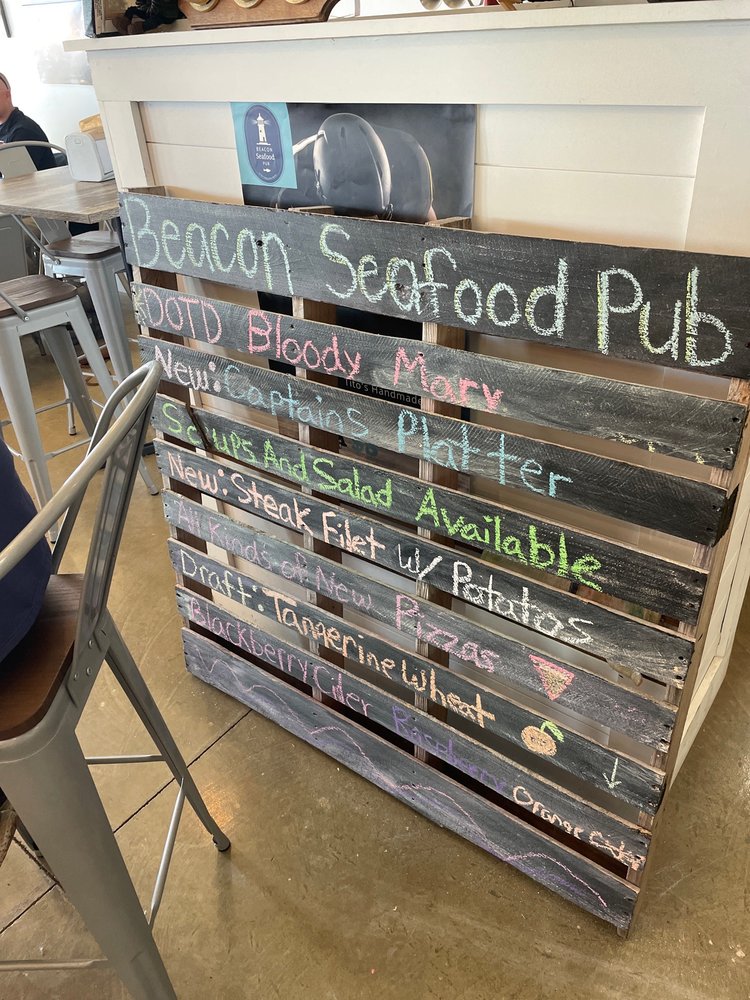 BEACON
Seafood
PUB
Beacon Seafood Pub
DOTD Bloody Mary
Tito's Handmade
New: Captains Platter
Soups And Salad Available
New: Steak Filet w/ Potatos
All Kinds of New Pizzas
Draft: Tangerine Wheat
Blackberry Cider Raspberry Orange Cider